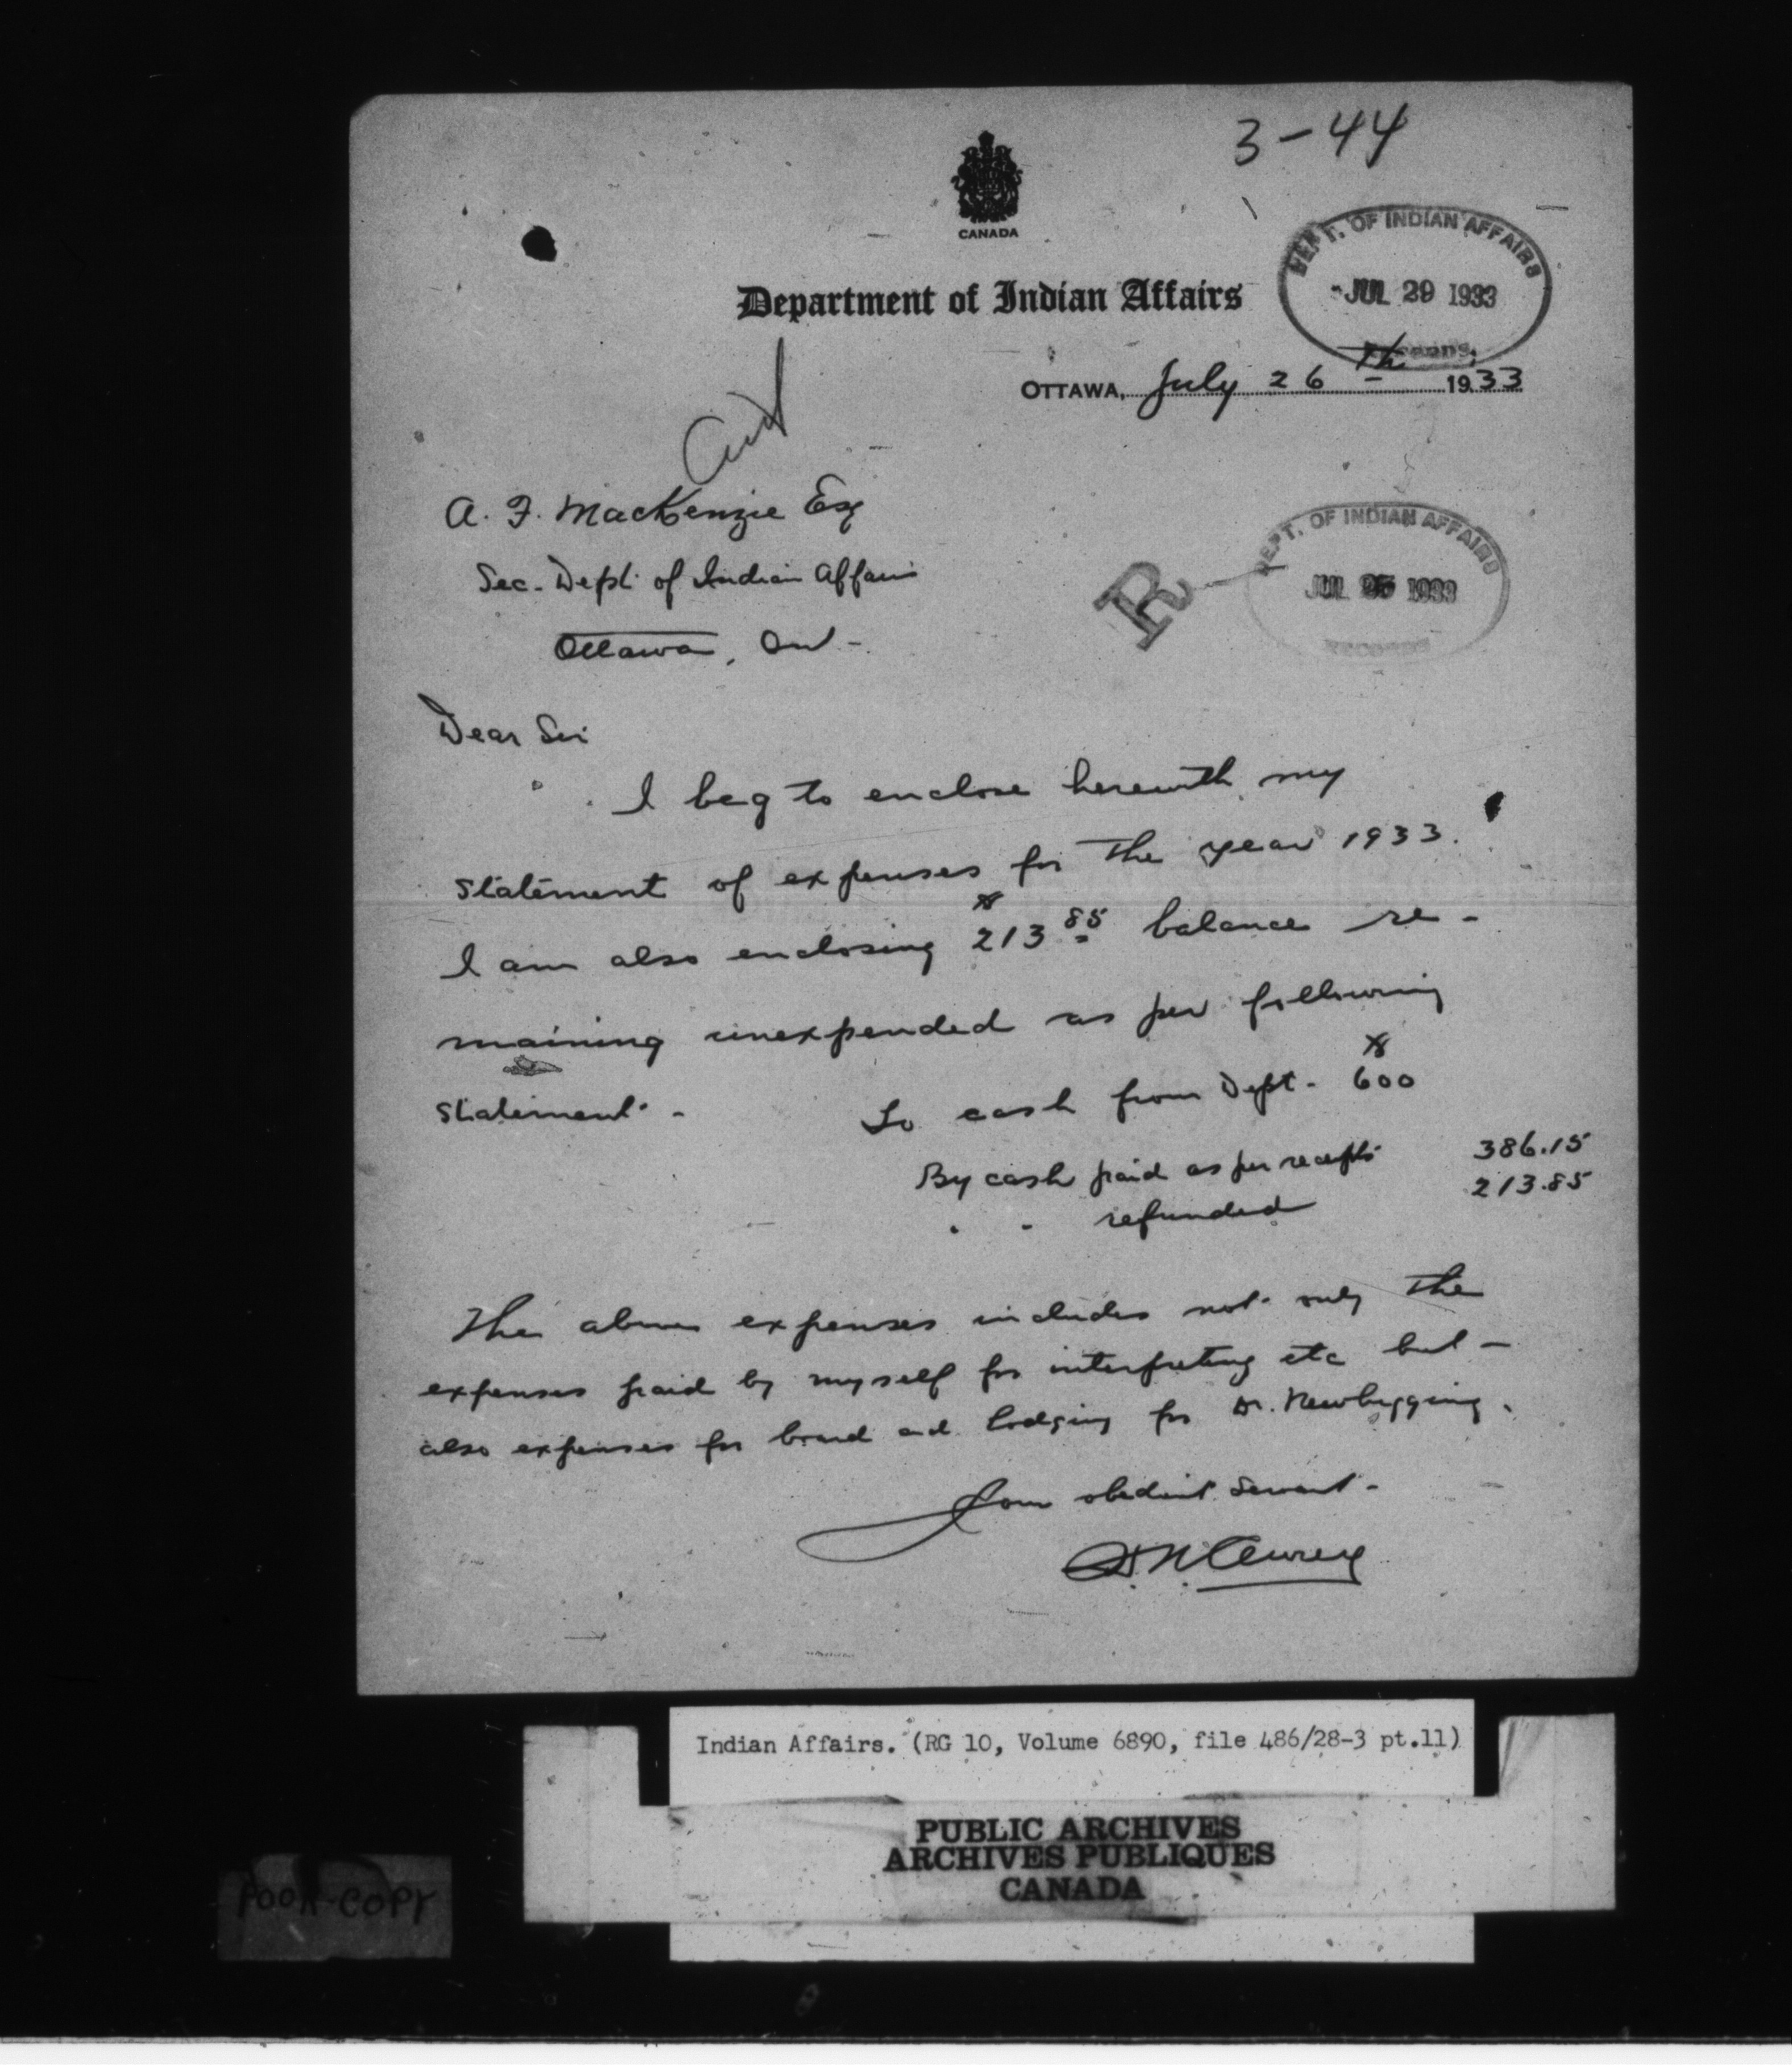 3-44
CANADA
Department of Indian Affairs
DEPT. OF INDIAN AFFAIRS
JUL 29 1933
RECORDS
OTTAWA, July 26th 1933
A. F. MacKenzie Esq
Sec. Dept of Indian Affairs
Ottawa, Ont-
R
DEPT. OF INDIAN AFFAIRS
JUL 1933
RECORDS
Dear Sir
I beg to enclose herewith my
statement of expenses for the year 1933.
I am also enclosing $213.85 balance re-
maining unexpended as per following
statement.-
To cash from Dept. $600
By cash paid as per receipts 386.15
" " refunded 213.85
The above expenses includes not only the
expenses paid by myself for interpreting etc but-
also expenses for board and lodging for Dr. Newbigging.
Your obedient servant-
Indian Affairs. (RG 10, Volume 6890, file 486/28-3 pt.11)
PUBLIC ARCHIVES
ARCHIVES PUBLIQUES
CANADA
POOR COPY